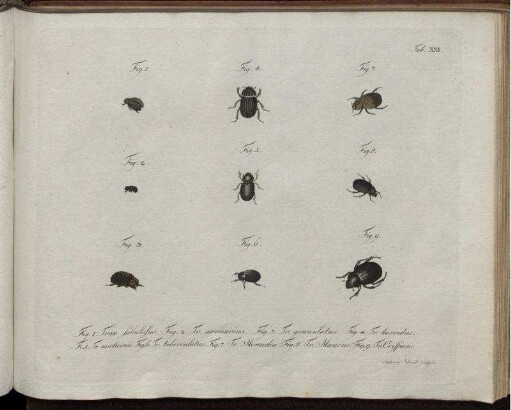 Tab. XXI.
Fig. 1. Fig. 4. Fig. 7.
Fig. 2. Fig. 5. Fig. 8.
Fig. 3. Fig. 6. Fig. 9.
Fig. 1. Trox sabulosus. Fig. 2. Tr. arenarius. Fig. 3. Tr. granulatus. Fig. 4. Tr. horridus.
F. 5. Tr. Fig. 6. Tr. tuberculatus. Fig. 7. Tr. Fig. 8. Tr. Maurus. Fig. 9. Tr.